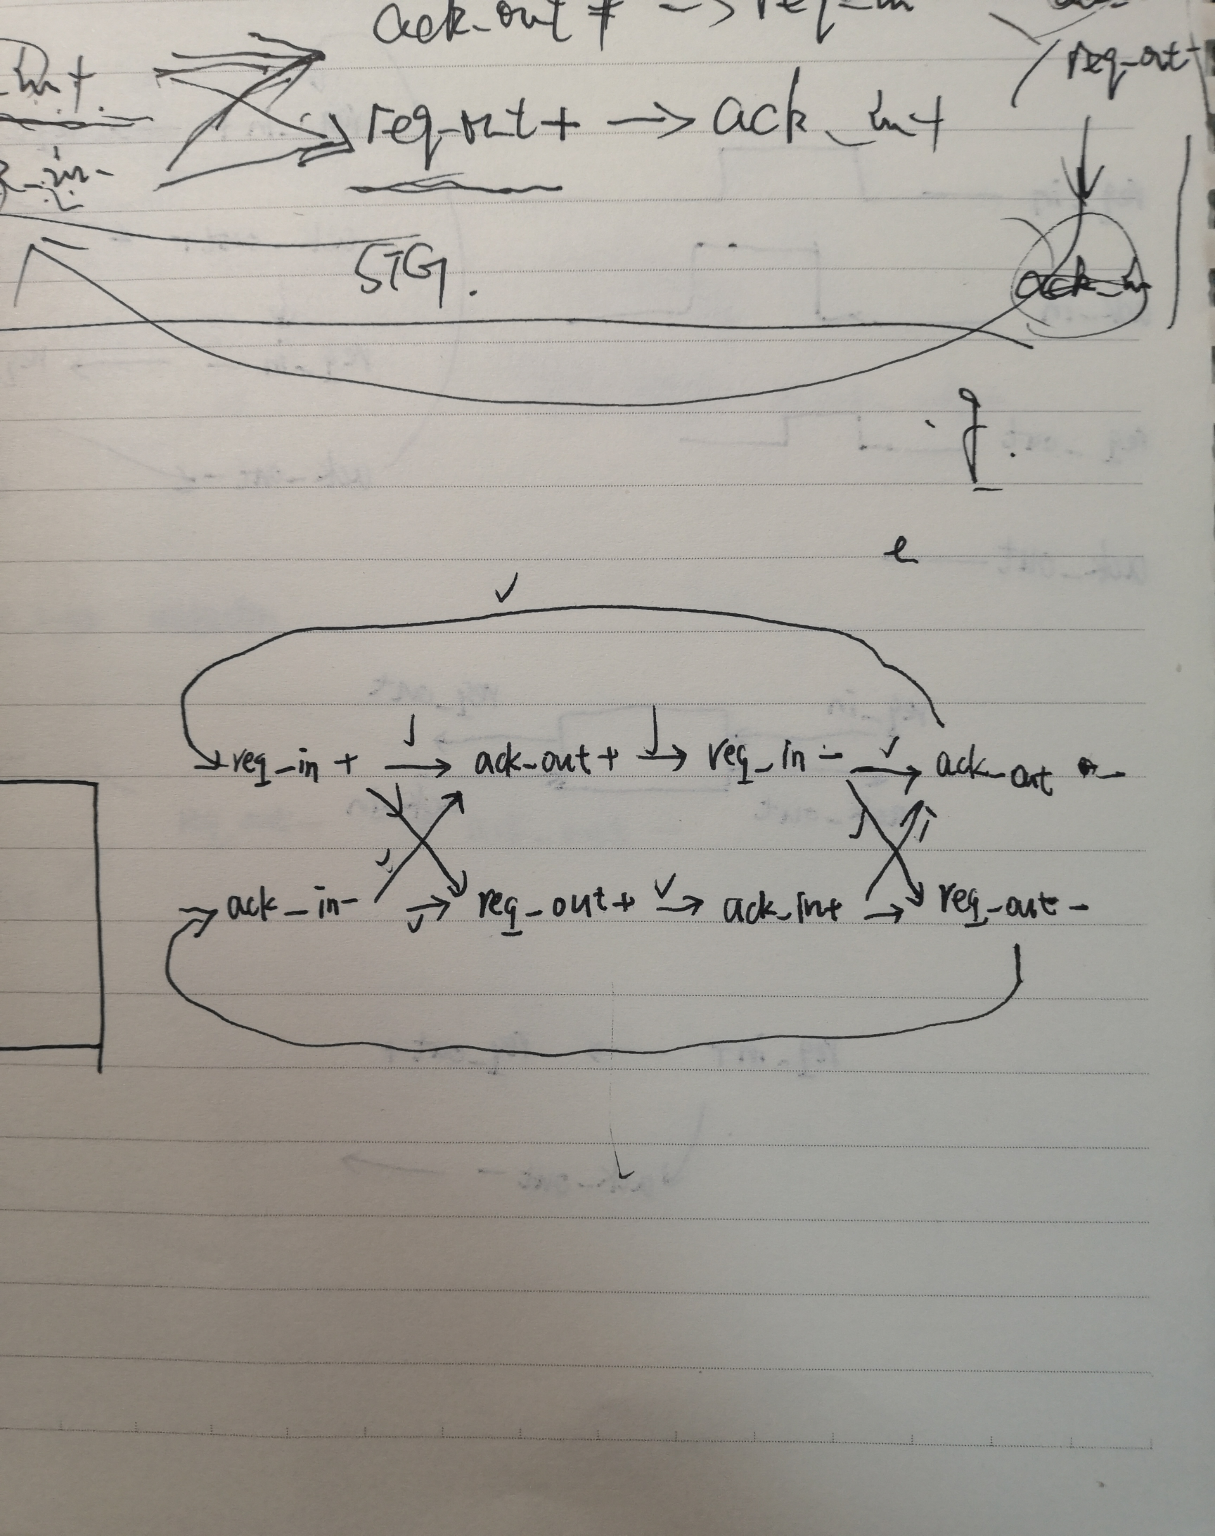 ack_out + → req_in
in +
req_out + → ack_in +
req_out -
in -
STG.
ack_in
e
req_in + → ack_out + → req_in - → ack_out -
ack_in - → req_out + → ack_in + → req_out -